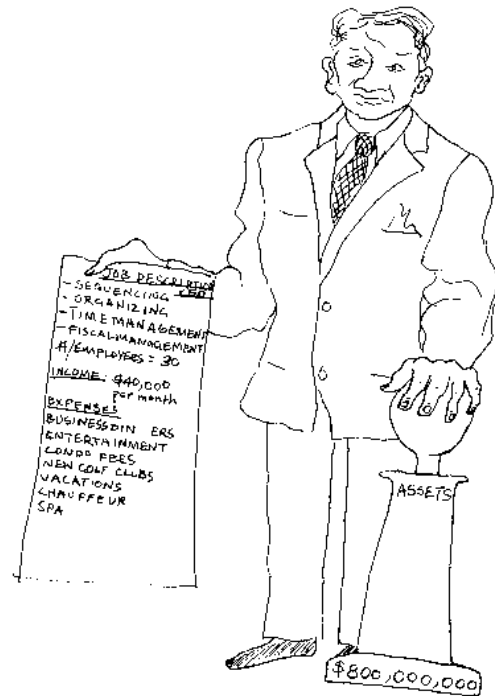 JOB DESCRIPTION
CEO
- SEQUENCING
- ORGANIZING
- TIME MANAGEMENT
- FISCAL MANAGEMENT
#/EMPLOYEES = 30
INCOME: $40,000
per month
EXPENSES
BUSINESS DIN ERS
ENTERTAINMENT
CONDO FEES
NEW GOLF CLUBS
VACATIONS
CHAUFFEUR
SPA
ASSETS
$800,000,000